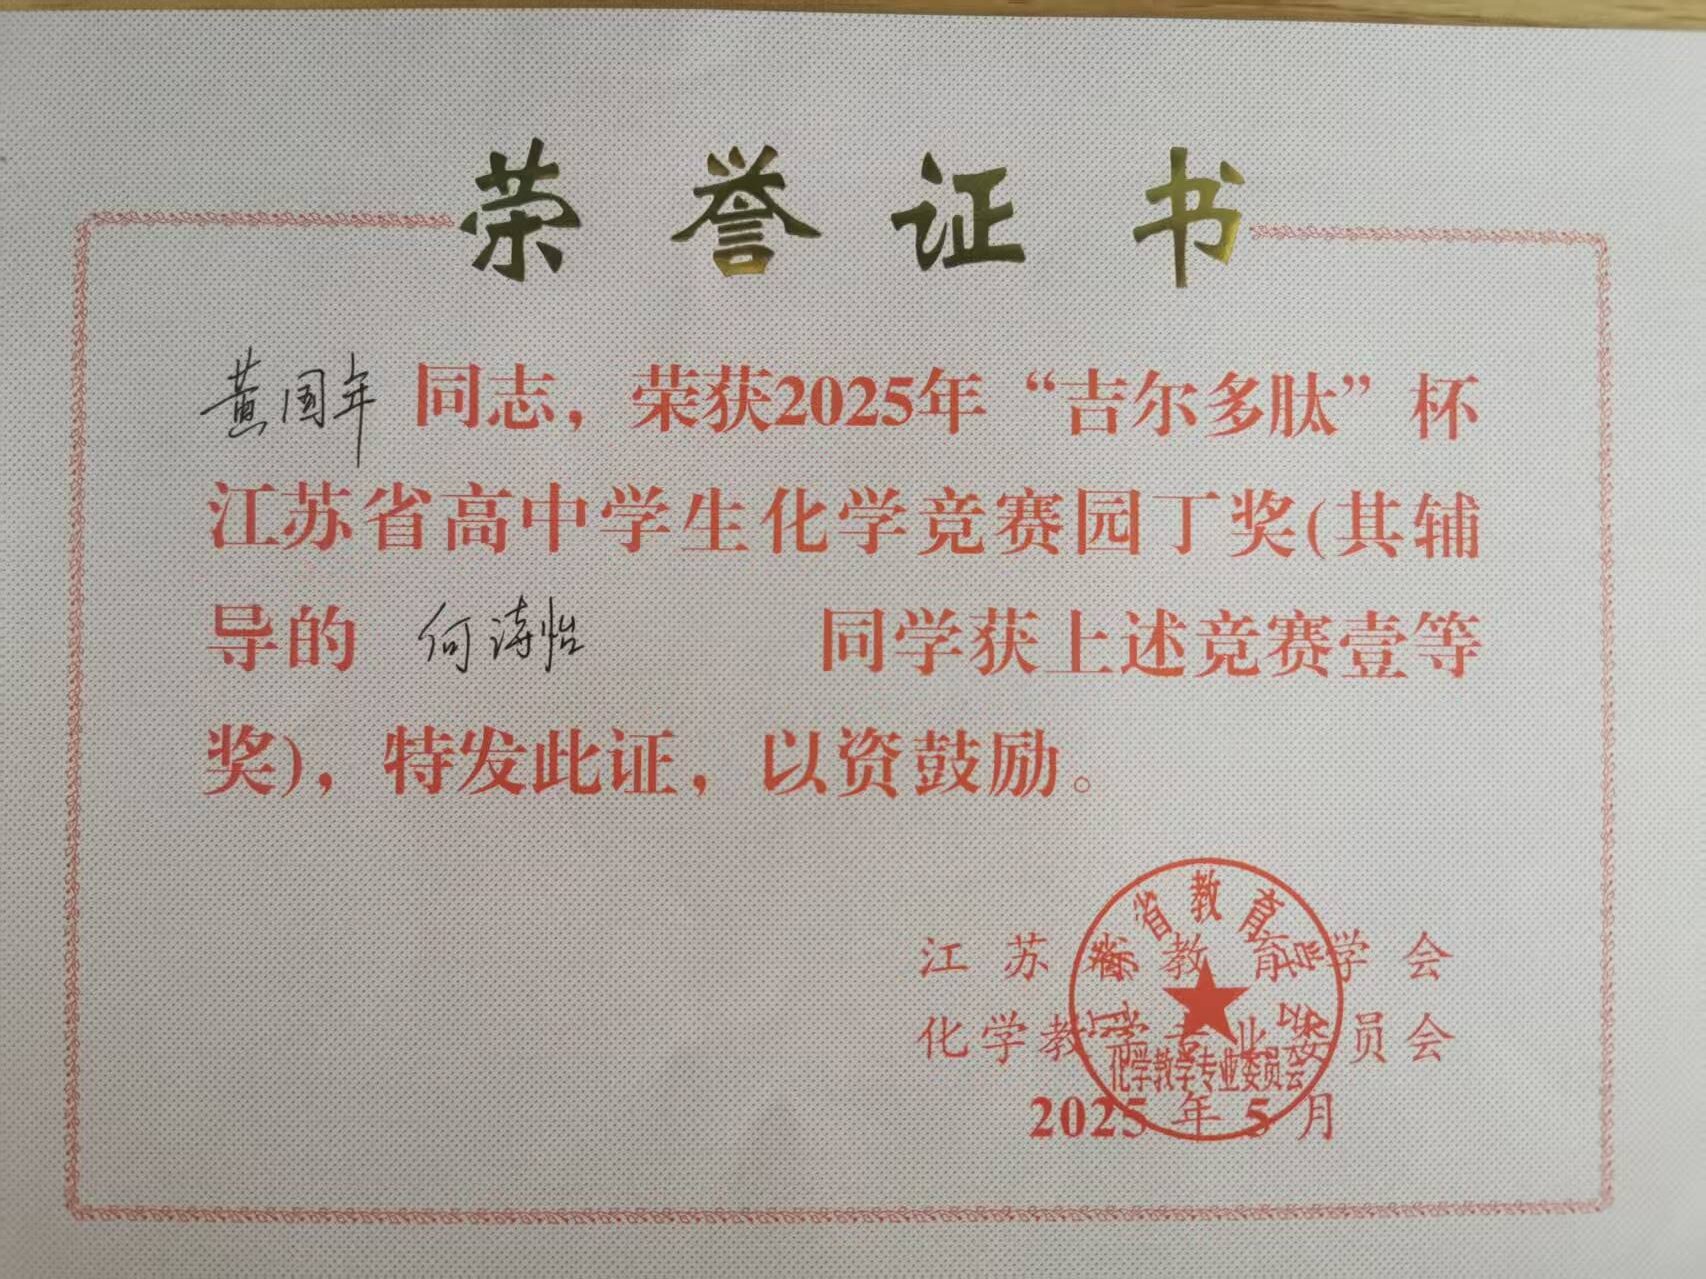 荣誉证书
黄国年同志，荣获2025年“吉尔多肽”杯
江苏省高中学生化学竞赛园丁奖(其辅
导的 何涛怡 同学获上述竞赛壹等
奖)，特发此证，以资鼓励。
江苏省教育学会
化学教学专业委员会
2025年5月
江苏省教育学会
化学教学专业委员会